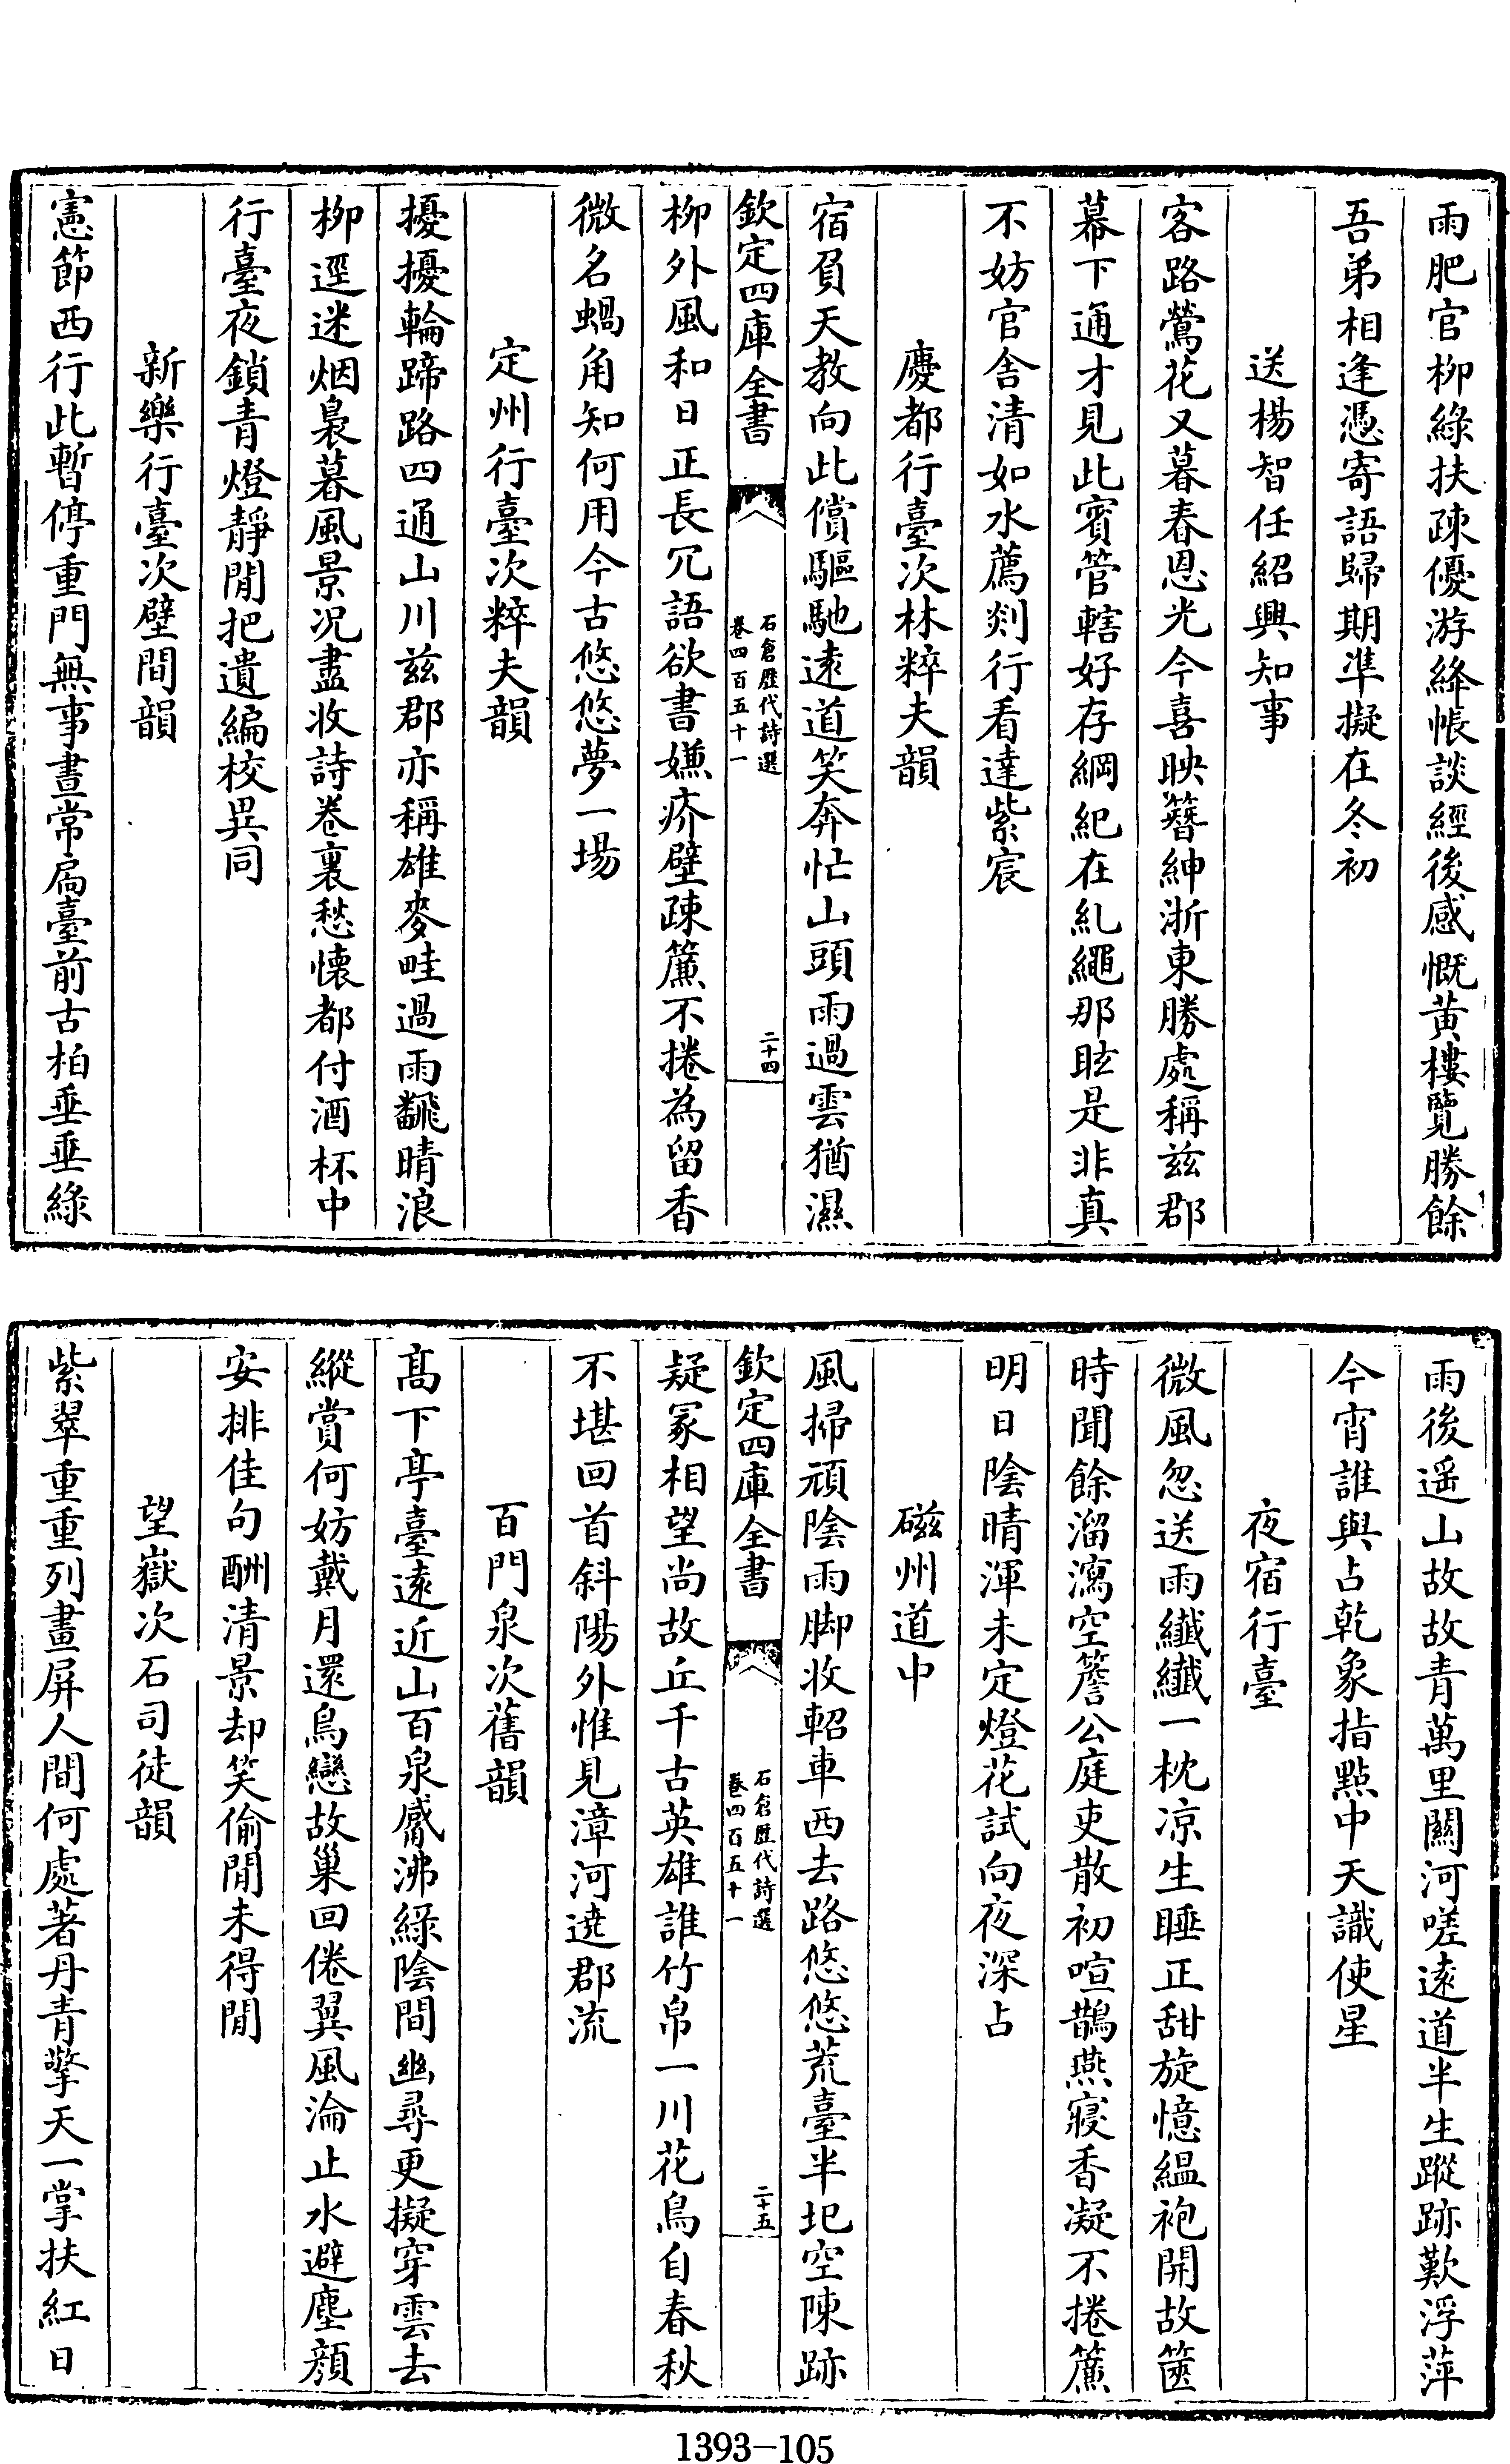 雨肥官柳綠扶疎優游絳帳談經後感慨黃樓覽勝餘
吾弟相逢憑寄語歸期準擬在冬初
送楊智任紹興知事
客路鶯花又暮春恩光今喜映簪紳浙東勝處稱兹郡
幕下通才見此賓管轄好存綱紀在糺繩那眩是非真
不妨官舍清如水薦剡行看達紫宸
慶都行臺次林粹夫韻
宿負天教向此償驅馳遠道笑奔忙山頭雨過雲猶濕
欽定四庫全書
石倉歷代詩選
卷四百五十一
二十四
柳外風和日正長冗語欲書嫌疥壁疎簾不捲為留香
微名蝸角知何用今古悠悠夢一場
定州行臺次粹夫韻
擾擾輪蹄路四通山川兹郡亦稱雄麥畦過雨飜晴浪
柳逕迷烟裊暮風景况盡收詩卷裏愁懷都付酒杯中
行臺夜鎖青燈靜閒把遺編校異同
新樂行臺次壁間韻
憲節西行此暫停重門無事晝常扃臺前古柏垂垂綠
雨後遥山故故青萬里關河嗟遠道半生蹤跡歎浮萍
今宵誰與占乾象指點中天識使星
夜宿行臺
微風忽送雨纖纖一枕凉生睡正甜旋憶緼袍開故篋
時聞餘溜瀉空簷公庭吏散初喧鵲燕寢香凝不捲簾
明日陰晴渾未定燈花試向夜深占
磁州道中
風掃頑陰雨脚收軺車西去路悠悠荒臺半圯空陳跡
欽定四庫全書
石倉歷代詩選
卷四百五十一
二十五
疑冢相望尚故丘千古英雄誰竹帛一川花鳥自春秋
不堪回首斜陽外惟見漳河遶郡流
百門泉次舊韻
高下亭臺遠近山百泉觱沸綠陰間幽尋更擬穿雲去
縱賞何妨戴月還鳥戀故巢回倦翼風淪止水避塵顔
安排佳句酬清景却笑偷閒未得閒
望嶽次石司徒韻
紫翠重重列畫屏人間何處著丹青擎天一掌扶紅日
1393-105